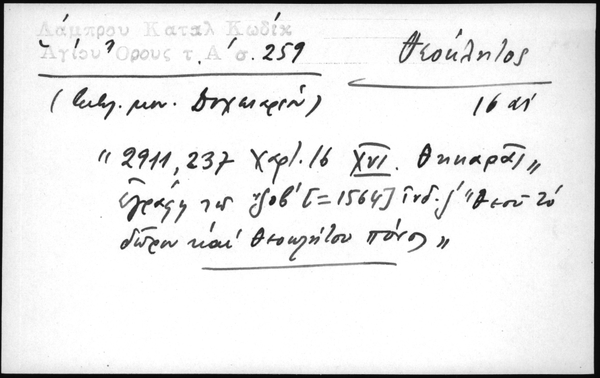 Λάμπρου Καταλ Κωδίκ
Ἁγίου Ὄρους τ. Α΄ σ. 259
Θεόκλητος
(Κατάλ. μον. Δοχειαρίου)
16 αἰ
„ 2911, 237 Χαρτ. 16 XVI. Θηκαρᾶ „
ἐγράφη τω ͵ζοβ´ [=1564] ἰνδ. ζ´ "Θεοῦ τὸ
δῶρον καὶ Θεοκλήτου πόνος „